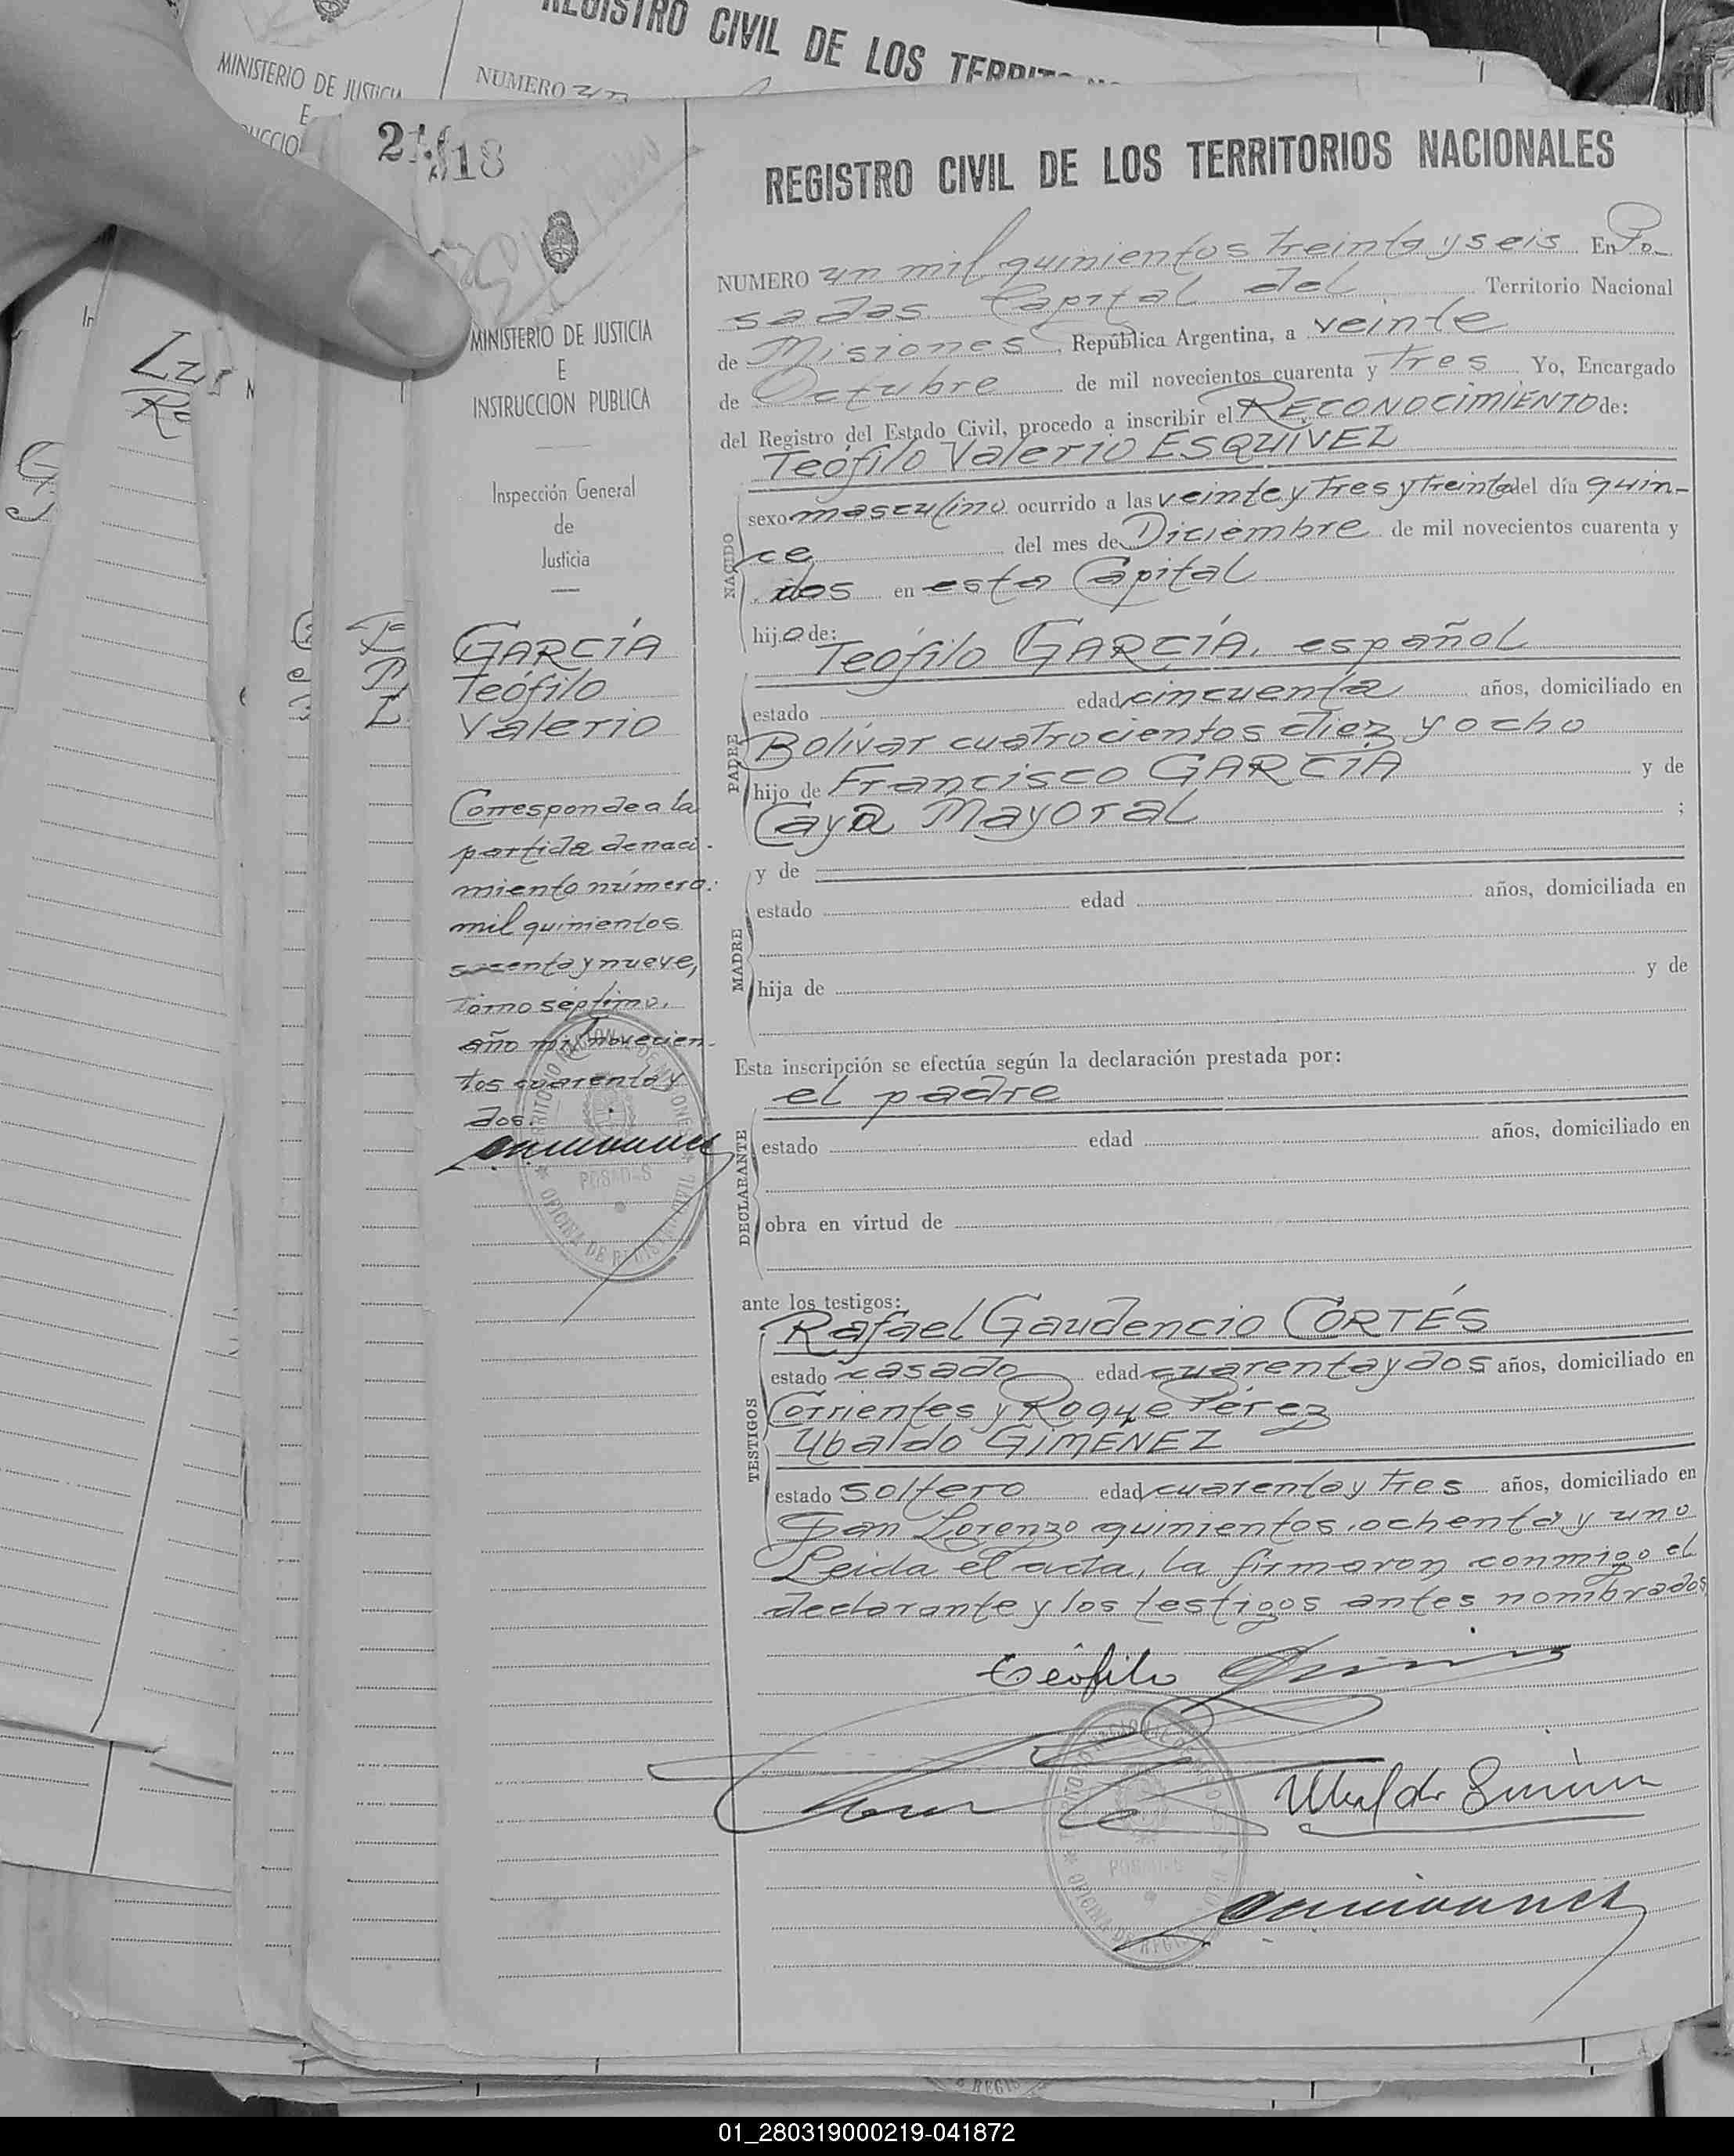 REGISTRO CIVIL DE LOS
MINISTERIO DE JUSTICIA
E
NUMERO
18
REGISTRO CIVIL DE LOS TERRITORIOS NACIONALES
NUMERO un mil quinientos treinta y seis En Po-
sadas Capital del Territorio Nacional
de Misiones, República Argentina, a veinte
de Octubre de mil novecientos cuarenta y tres Yo, Encargado
del Registro del Estado Civil, procedo a inscribir el RECONOCIMIENTO de:
Teófilo Valerio ESQUÍVEL
NACIDO
sexo masculino ocurrido a las veinte y tres y treinta del día quin-
ce del mes de Diciembre de mil novecientos cuarenta y
dos en esta Capital
hijo de:
Teófilo GARCÍA. español
PADRE
estado edad cincuenta años, domiciliado en
Bolívar cuatrocientos diez y ocho
hijo de Francisco GARCÍA y de
Caya Mayoral ;
y de
MADRE
estado edad años, domiciliada en
hija de y de
Esta inscripción se efectúa según la declaración prestada por:
el padre
DECLARANTE
estado edad años, domiciliado en
obra en virtud de
ante los testigos:
Rafael Gaudencio CORTÉS
TESTIGOS
estado casado edad cuarenta y dos años, domiciliado en
Corrientes y Roque Pérez
Ubaldo GIMÉNEZ
estado soltero edad cuarenta y tres años, domiciliado en
San Lorenzo quinientos ochenta y uno
Leida el acta, la firmaron conmigo el
declarante y los testigos antes nombrados
teófilo
MINISTERIO DE JUSTICIA
E
INSTRUCCION PUBLICA
Inspección General
de
Justicia
GARCÍA
Teófilo
Valerio
Corresponde a la
partida de naci-
miento número:
mil quinientos
sesenta y nueve,
tomo séptimo.
año mil novecien-
tos cuarenta y
dos.
POSADAS
OFICINA DE REGISTRO CIVIL
01_280319000219-041872